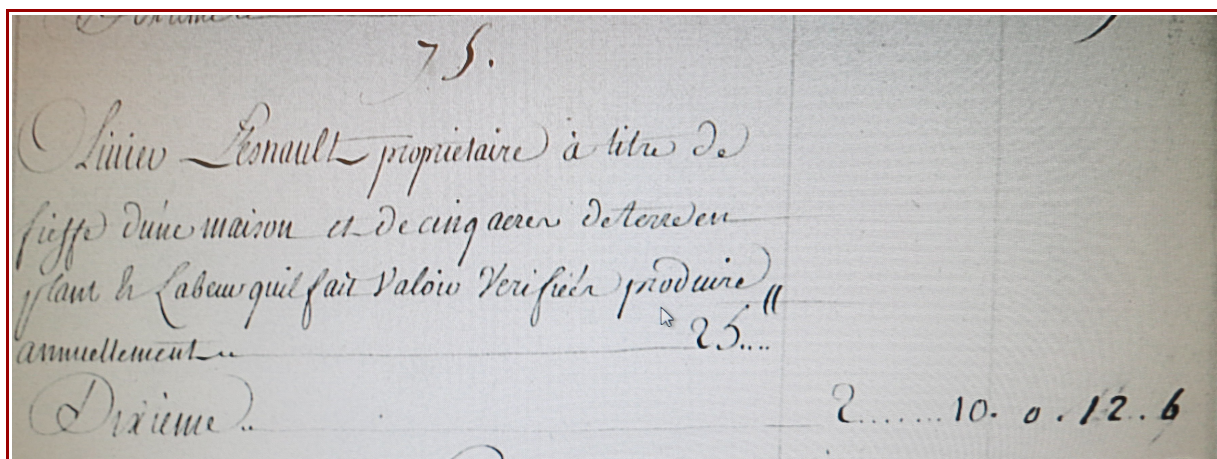 Dixieme
75.
Livier Lesnault proprietaire à titre de
fieffe d'une maison et de cinq acres de terre en
plant & Labeur quil fait Valoir Verifiés produire
annuellement 25....''
Dixieme.. 2.......10. 0.12..6